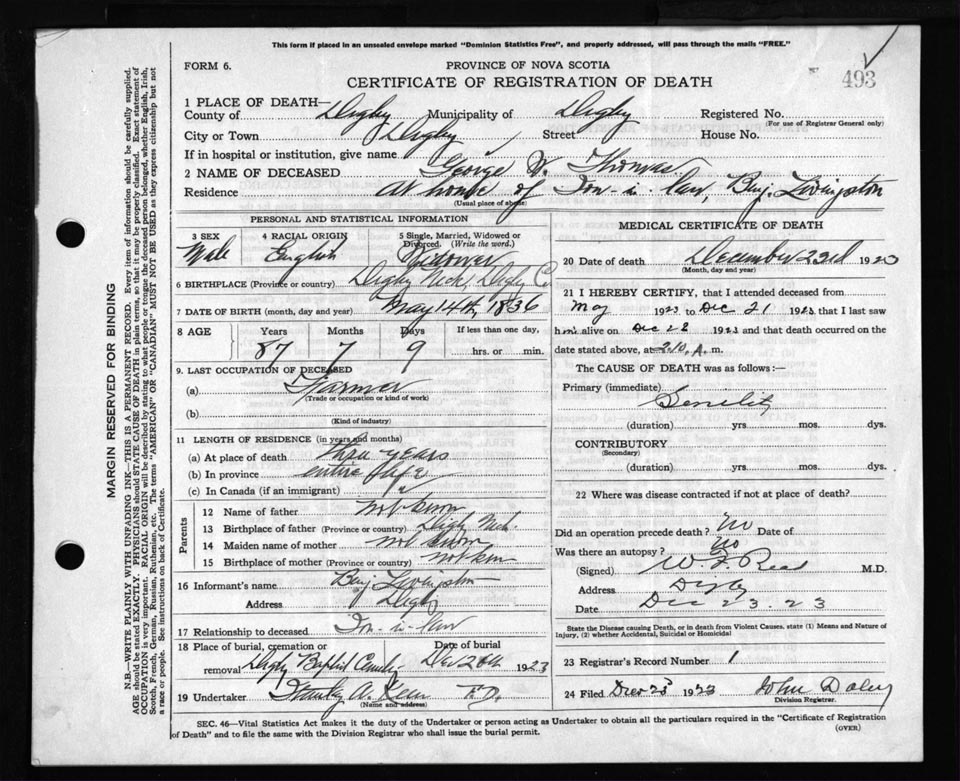 This form if placed in an unsealed envelope marked "Dominion Statistics Free", and properly addressed, will pass through the mails "FREE."
FORM 6.
PROVINCE OF NOVA SCOTIA
CERTIFICATE OF REGISTRATION OF DEATH
493
1 PLACE OF DEATH—
County of Digby Municipality of Digby Registered No.
(For use of Registrar General only)
City or Town Digby Street House No.
If in hospital or institution, give name
2 NAME OF DECEASED George W. Thomas
Residence at house of Son-in-law, Benj. Livingston
(Usual place of abode)
PERSONAL AND STATISTICAL INFORMATION
3 SEX
Male
4 RACIAL ORIGIN
English
5 Single, Married, Widowed or Divorced. (Write the word.)
Widower
6 BIRTHPLACE (Province or country) Digby Neck, Digby C.
7 DATE OF BIRTH (month, day and year) May 14th, 1836
8 AGE Years Months Days If less than one day,
87 7 9 hrs. or min.
9. LAST OCCUPATION OF DECEASED
(a) Farmer
(Trade or occupation or kind of work)
(b)
(Kind of industry)
11 LENGTH OF RESIDENCE (in years and months)
(a) At place of death three years
(b) In province entire life
(c) In Canada (if an immigrant)
Parents
12 Name of father not known
13 Birthplace of father (Province or country) Digby Neck.
14 Maiden name of mother not known
15 Birthplace of mother (Province or country) not kn
16 Informant's name Benj. Livingston
Address Digby
17 Relationship to deceased Son-in-law
18 Place of burial, cremation or Date of burial
removal Digby Baptist Dec 26th 1923
19 Undertaker A. F.D.
(Name and address)
MEDICAL CERTIFICATE OF DEATH
20 Date of death December 23rd 1923
(Month, day and year)
21 I HEREBY CERTIFY, that I attended deceased from
May 1923 to Dec 21 1923 that I last saw
him alive on Dec 22 1923 and that death occurred on the
date stated above, at 2.10. A. m.
The CAUSE OF DEATH was as follows:—
Primary (immediate)
Senility
(duration) yrs. mos. dys.
CONTRIBUTORY
(Secondary)
(duration) yrs. mos. dys.
22 Where was disease contracted if not at place of death?
Did an operation precede death? No Date of
Was there an autopsy? No
(Signed) W. F. Read M.D.
Address Digby
Date Dec 23. 23
State the Disease causing Death, or in death from Violent Causes, state (1) Means and Nature of Injury, (2) whether Accidental, Suicidal or Homicidal
23 Registrar's Record Number 1
24 Filed 1923 John Daley
Division Registrar.
SEC. 46—Vital Statistics Act makes it the duty of the Undertaker or person acting as Undertaker to obtain all the particulars required in the "Certificate of Registration
of Death" and to file the same with the Division Registrar who shall issue the burial permit.
(OVER)
MARGIN RESERVED FOR BINDING
N.B.—WRITE PLAINLY WITH UNFADING INK—THIS IS A PERMANENT RECORD. Every item of information should be carefully supplied.
AGE should be stated EXACTLY. PHYSICIANS should STATE CAUSE OF DEATH in plain terms, so that it may be properly classified. Exact statement of
OCCUPATION is very important. RACIAL ORIGIN will be described by stating to what people or tongue the deceased person belonged, whether English, Irish,
Scotch, French, German, Russian, Ruthenian, etc. The terms "AMERICAN" OR "CANADIAN" MUST NOT BE USED as they express citizenship but not
a race or people. See instructions on back of Certificate.